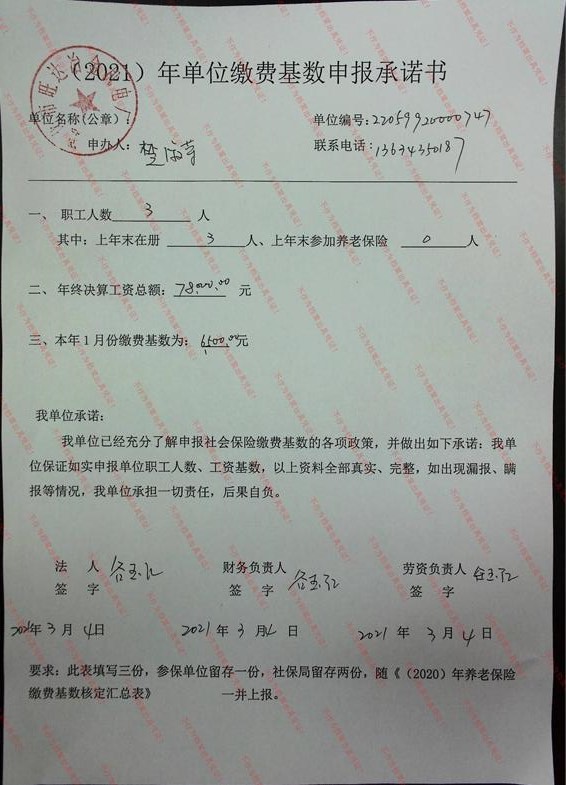 （2021）年单位缴费基数申报承诺书
单位名称(公章)： 单位编号：22059920000747
申办人： 联系电话：13634350187
一、 职工人数 3 人
其中：上年末在册 3 人、上年末参加养老保险 0 人
二、 年终决算工资总额：78,000.00 元
三、本年1月份缴费基数为：6500.00元
我单位承诺：
我单位已经充分了解申报社会保险缴费基数的各项政策，并做出如下承诺：我单
位保证如实申报单位职工人数、工资基数，以上资料全部真实、完整，如出现漏报、瞒
报等情况，我单位承担一切责任，后果自负。
法 人 财务负责人 劳资负责人
签 字 签 字 签 字
2021年3月4日 2021年3月4日 2021年3月4日
要求：此表填写三份，参保单位留存一份，社保局留存两份，随《（2020）年养老保险
缴费基数核定汇总表》 一并上报。